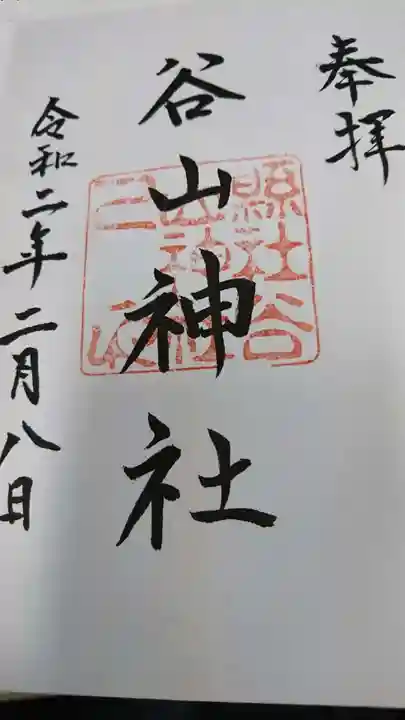 奉拝
谷山神社
令和二年二月八日
縣社谷
山神社
之印